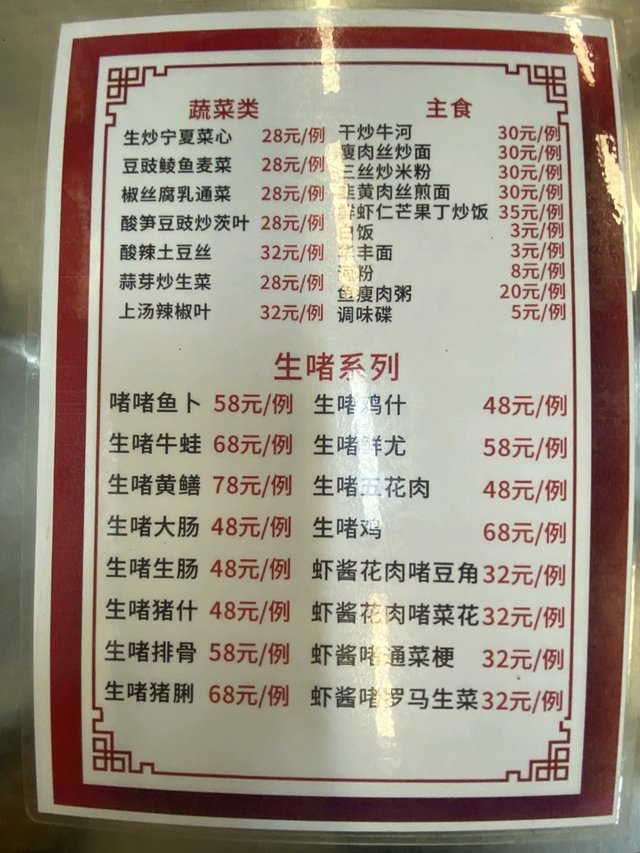 蔬菜类
生炒宁夏菜心 28元/例
豆豉鲮鱼麦菜 28元/例
椒丝腐乳通菜 28元/例
酸笋豆豉炒茨叶 28元/例
酸辣土豆丝 32元/例
蒜芽炒生菜 28元/例
上汤辣椒叶 32元/例
主食
干炒牛河 30元/例
瘦肉丝炒面 30元/例
三丝炒米粉 30元/例
韭黄肉丝煎面 30元/例
鲜虾仁芒果丁炒饭 35元/例
白饭 3元/例
华丰面 3元/例
河粉 8元/例
鱼瘦肉粥 20元/例
调味碟 5元/例
生啫系列
啫啫鱼卜 58元/例
生啫牛蛙 68元/例
生啫黄鳝 78元/例
生啫大肠 48元/例
生啫生肠 48元/例
生啫猪什 48元/例
生啫排骨 58元/例
生啫猪脷 68元/例
生啫鸡什 48元/例
生啫鲜尤 58元/例
生啫五花肉 48元/例
生啫鸡 68元/例
虾酱花肉啫豆角 32元/例
虾酱花肉啫菜花 32元/例
虾酱啫通菜梗 32元/例
虾酱啫罗马生菜 32元/例